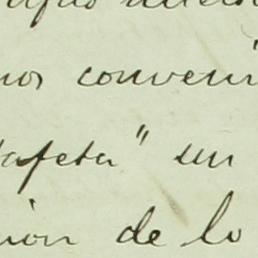 nos conveni
afeta" un
nion de lo